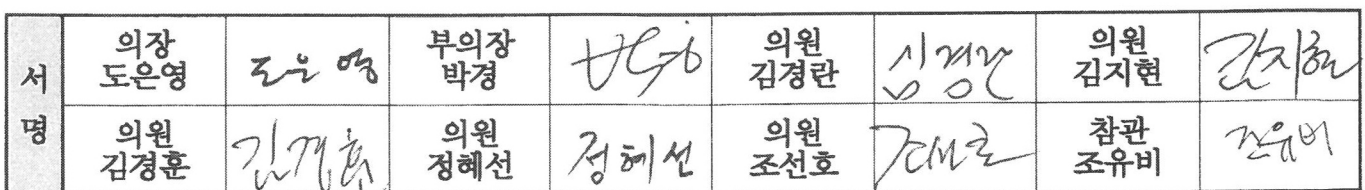 서명
의장 도은영 도은영 부의장 박경 박경 의원 김경란 김경란 의원 김지현 김지현
의원 김경훈 김경훈 의원 정혜선 정혜선 의원 조선호 조선호 참관 조유비 조유비